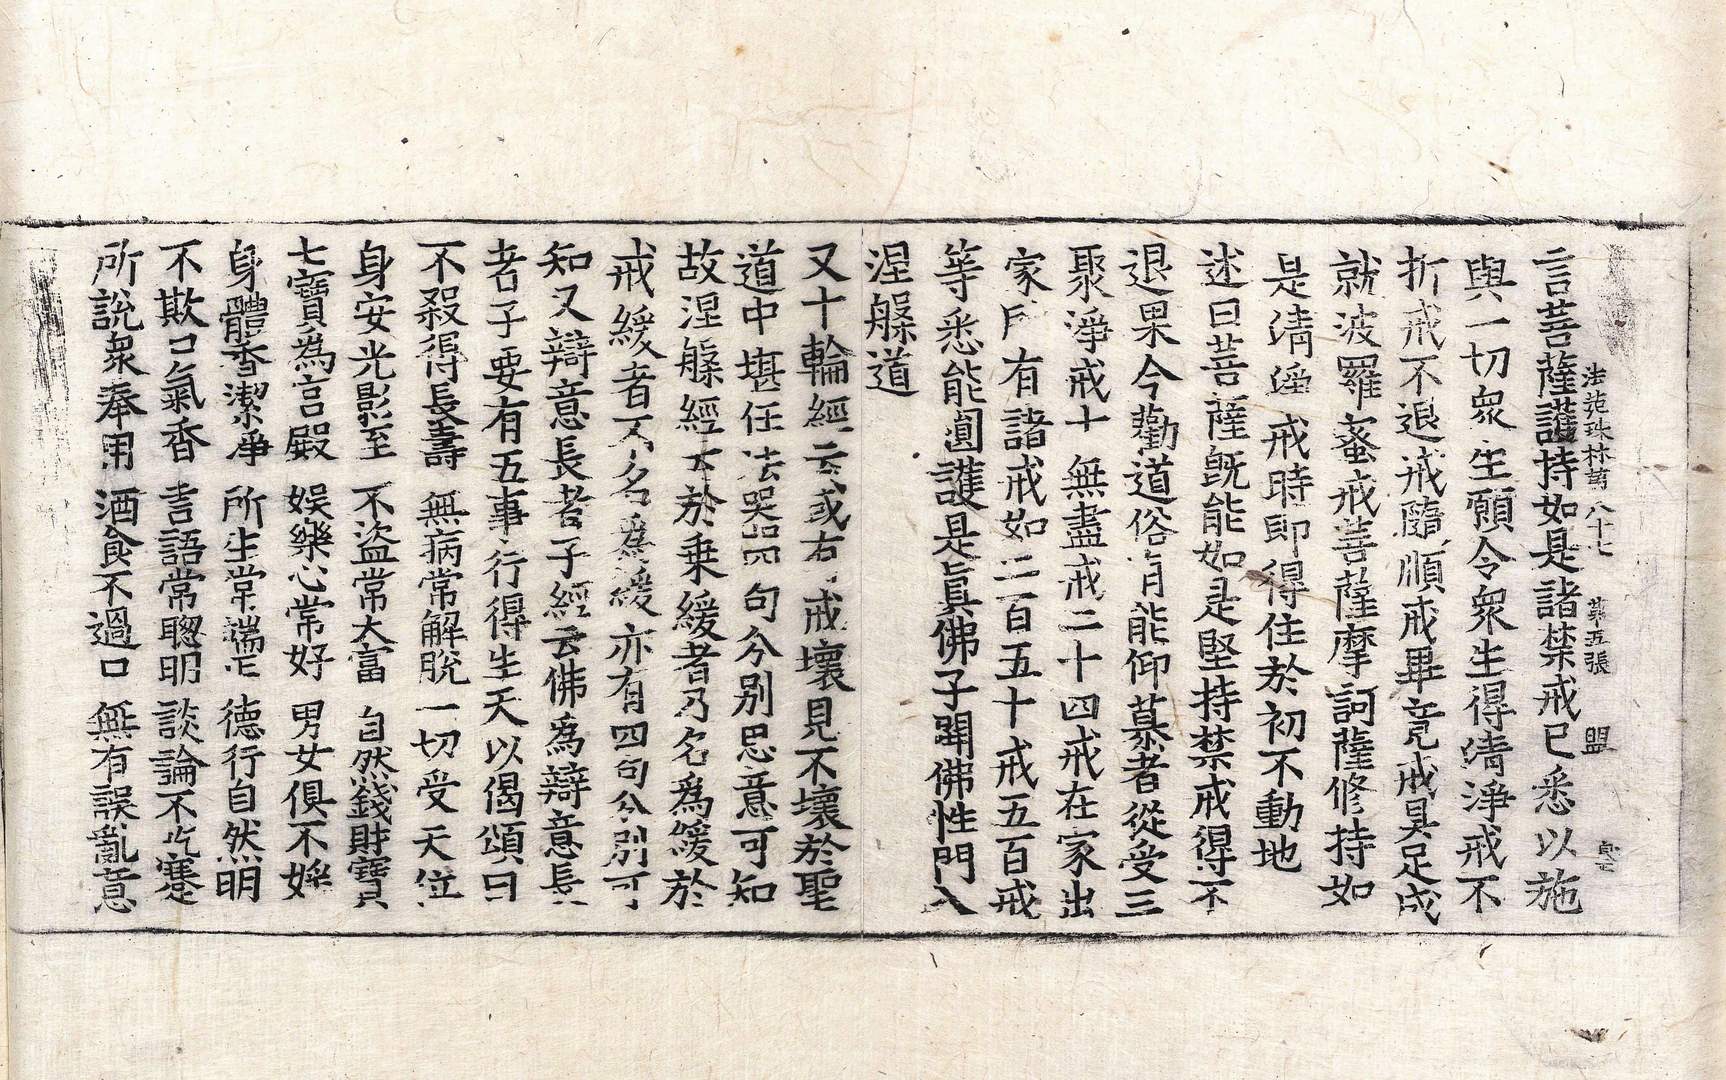 法苑珠林第八十七 第五張 盟
言菩薩護持如是諸禁戒已悉以施
與一切衆生願令衆生得清淨戒不
折戒不退戒隨順戒畢竟戒具足成
就波羅蜜戒菩薩摩訶薩修持如
是清淨戒時即得住於初不動地
述曰菩薩旣能如是堅持禁戒得不
退果今勸道俗有能仰慕者從受三
聚淨戒十無盡戒二十四戒在家出
家所有諸戒如二百五十戒五百戒
等悉能圓護是眞佛子開佛性門入
涅槃道
又十輪經云或有戒壞見不壞於聖
道中堪任法器四句分別思意可知
故涅槃經云於乗緩者乃名爲緩於
戒緩者不名爲緩亦有四句分別可
知又辯意長者子經云佛爲辯意長
者子要有五事行得生天以偈頌曰
不殺得長壽 無病常解脫 一切受天位
身安光影至 不盜常大富 自然錢財寶
七寶爲宮殿 娛樂心常好 男女俱不婬
身體香潔淨 所生常端正 德行自然明
不欺口氣香 言語常聰明 談論不吃蹇
所說衆奉用 酒食不過口 無有誤亂意